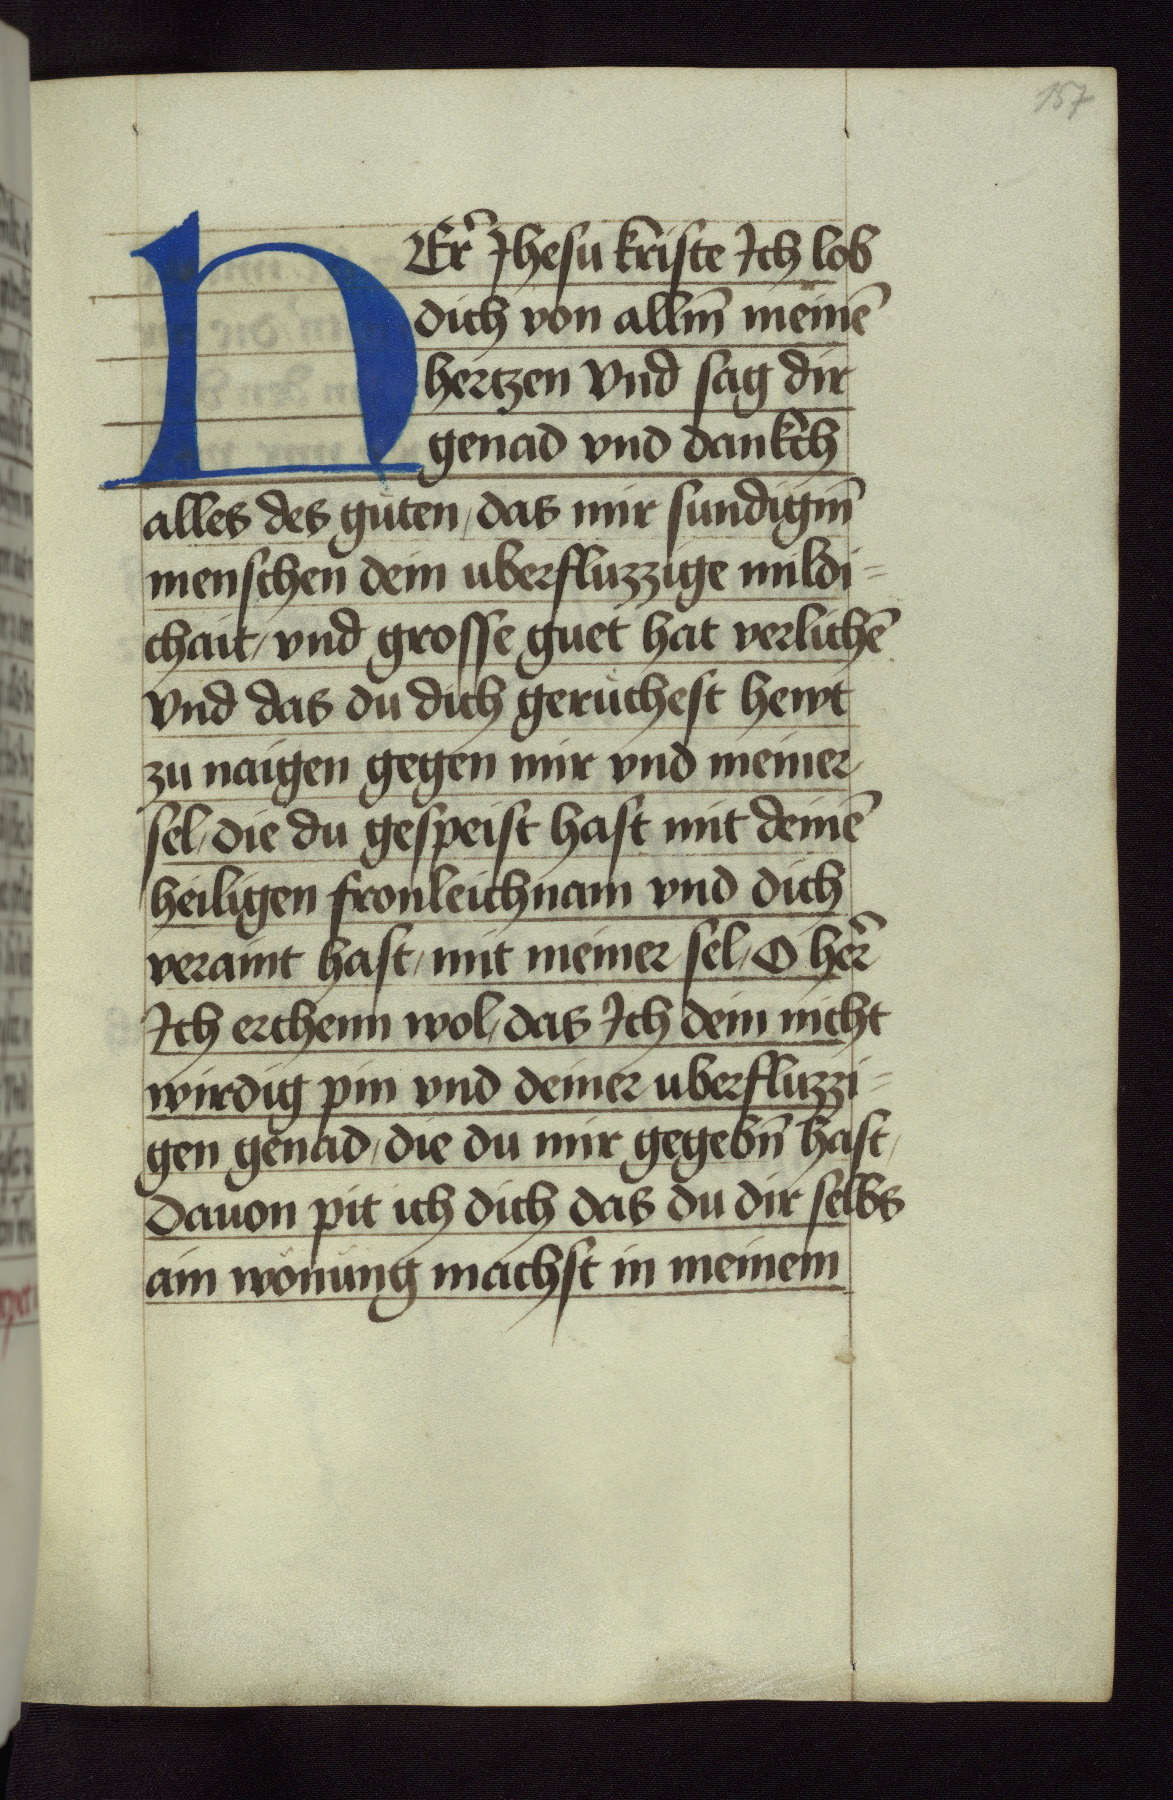 157
HEr̃ Jhesu kriste Ich lob
dich von allm̃ meinē
hertzen Vnd sag dir
genad vnd dankch
alles des guten, das mir sundigm̃
menschen dein uberfluzzige mildi=
chait, vnd grosse guet hat verlichē
Vnd das du dich geruͤchest hewt
zu naigen gegen mir vnd meiner
sel, die du gespeist hast mit deinē
heiligen fronleichnam vnd dich
veraint hast, mit meiner sel, O her̃
Ich erchenn wol, das Ich dein nicht
wirdig pin vnd deiner uberfluzzi=
gen genad, die du mir gegebñ hast,
Dauon pit ich dich das du dir selbs
ain wonung machst in meinem